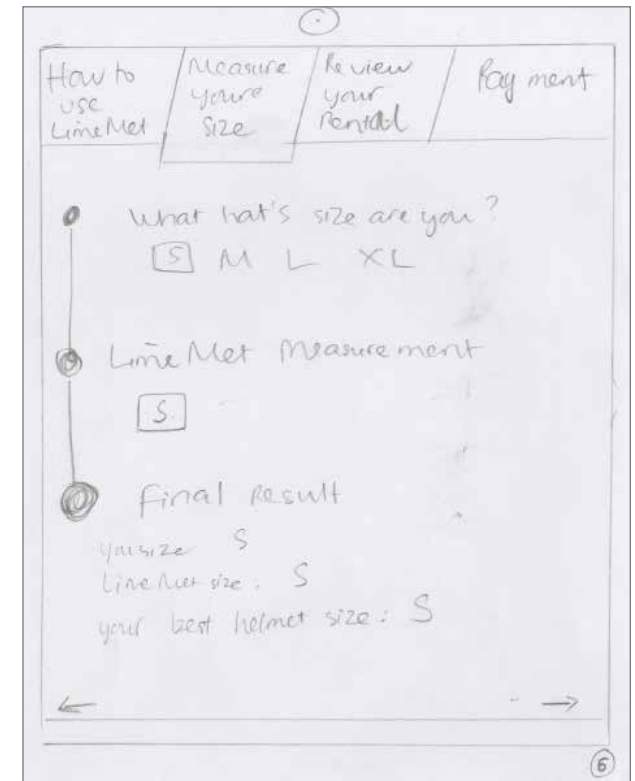 How to
use
LimeMet
Measure
youre
Size
Review
your
Rental
Pay ment
What hat's size are you?
S M L XL
LimeMet Measurement
S
Final Result
your size S
LimeMet size: S
your best helmet size: S
6